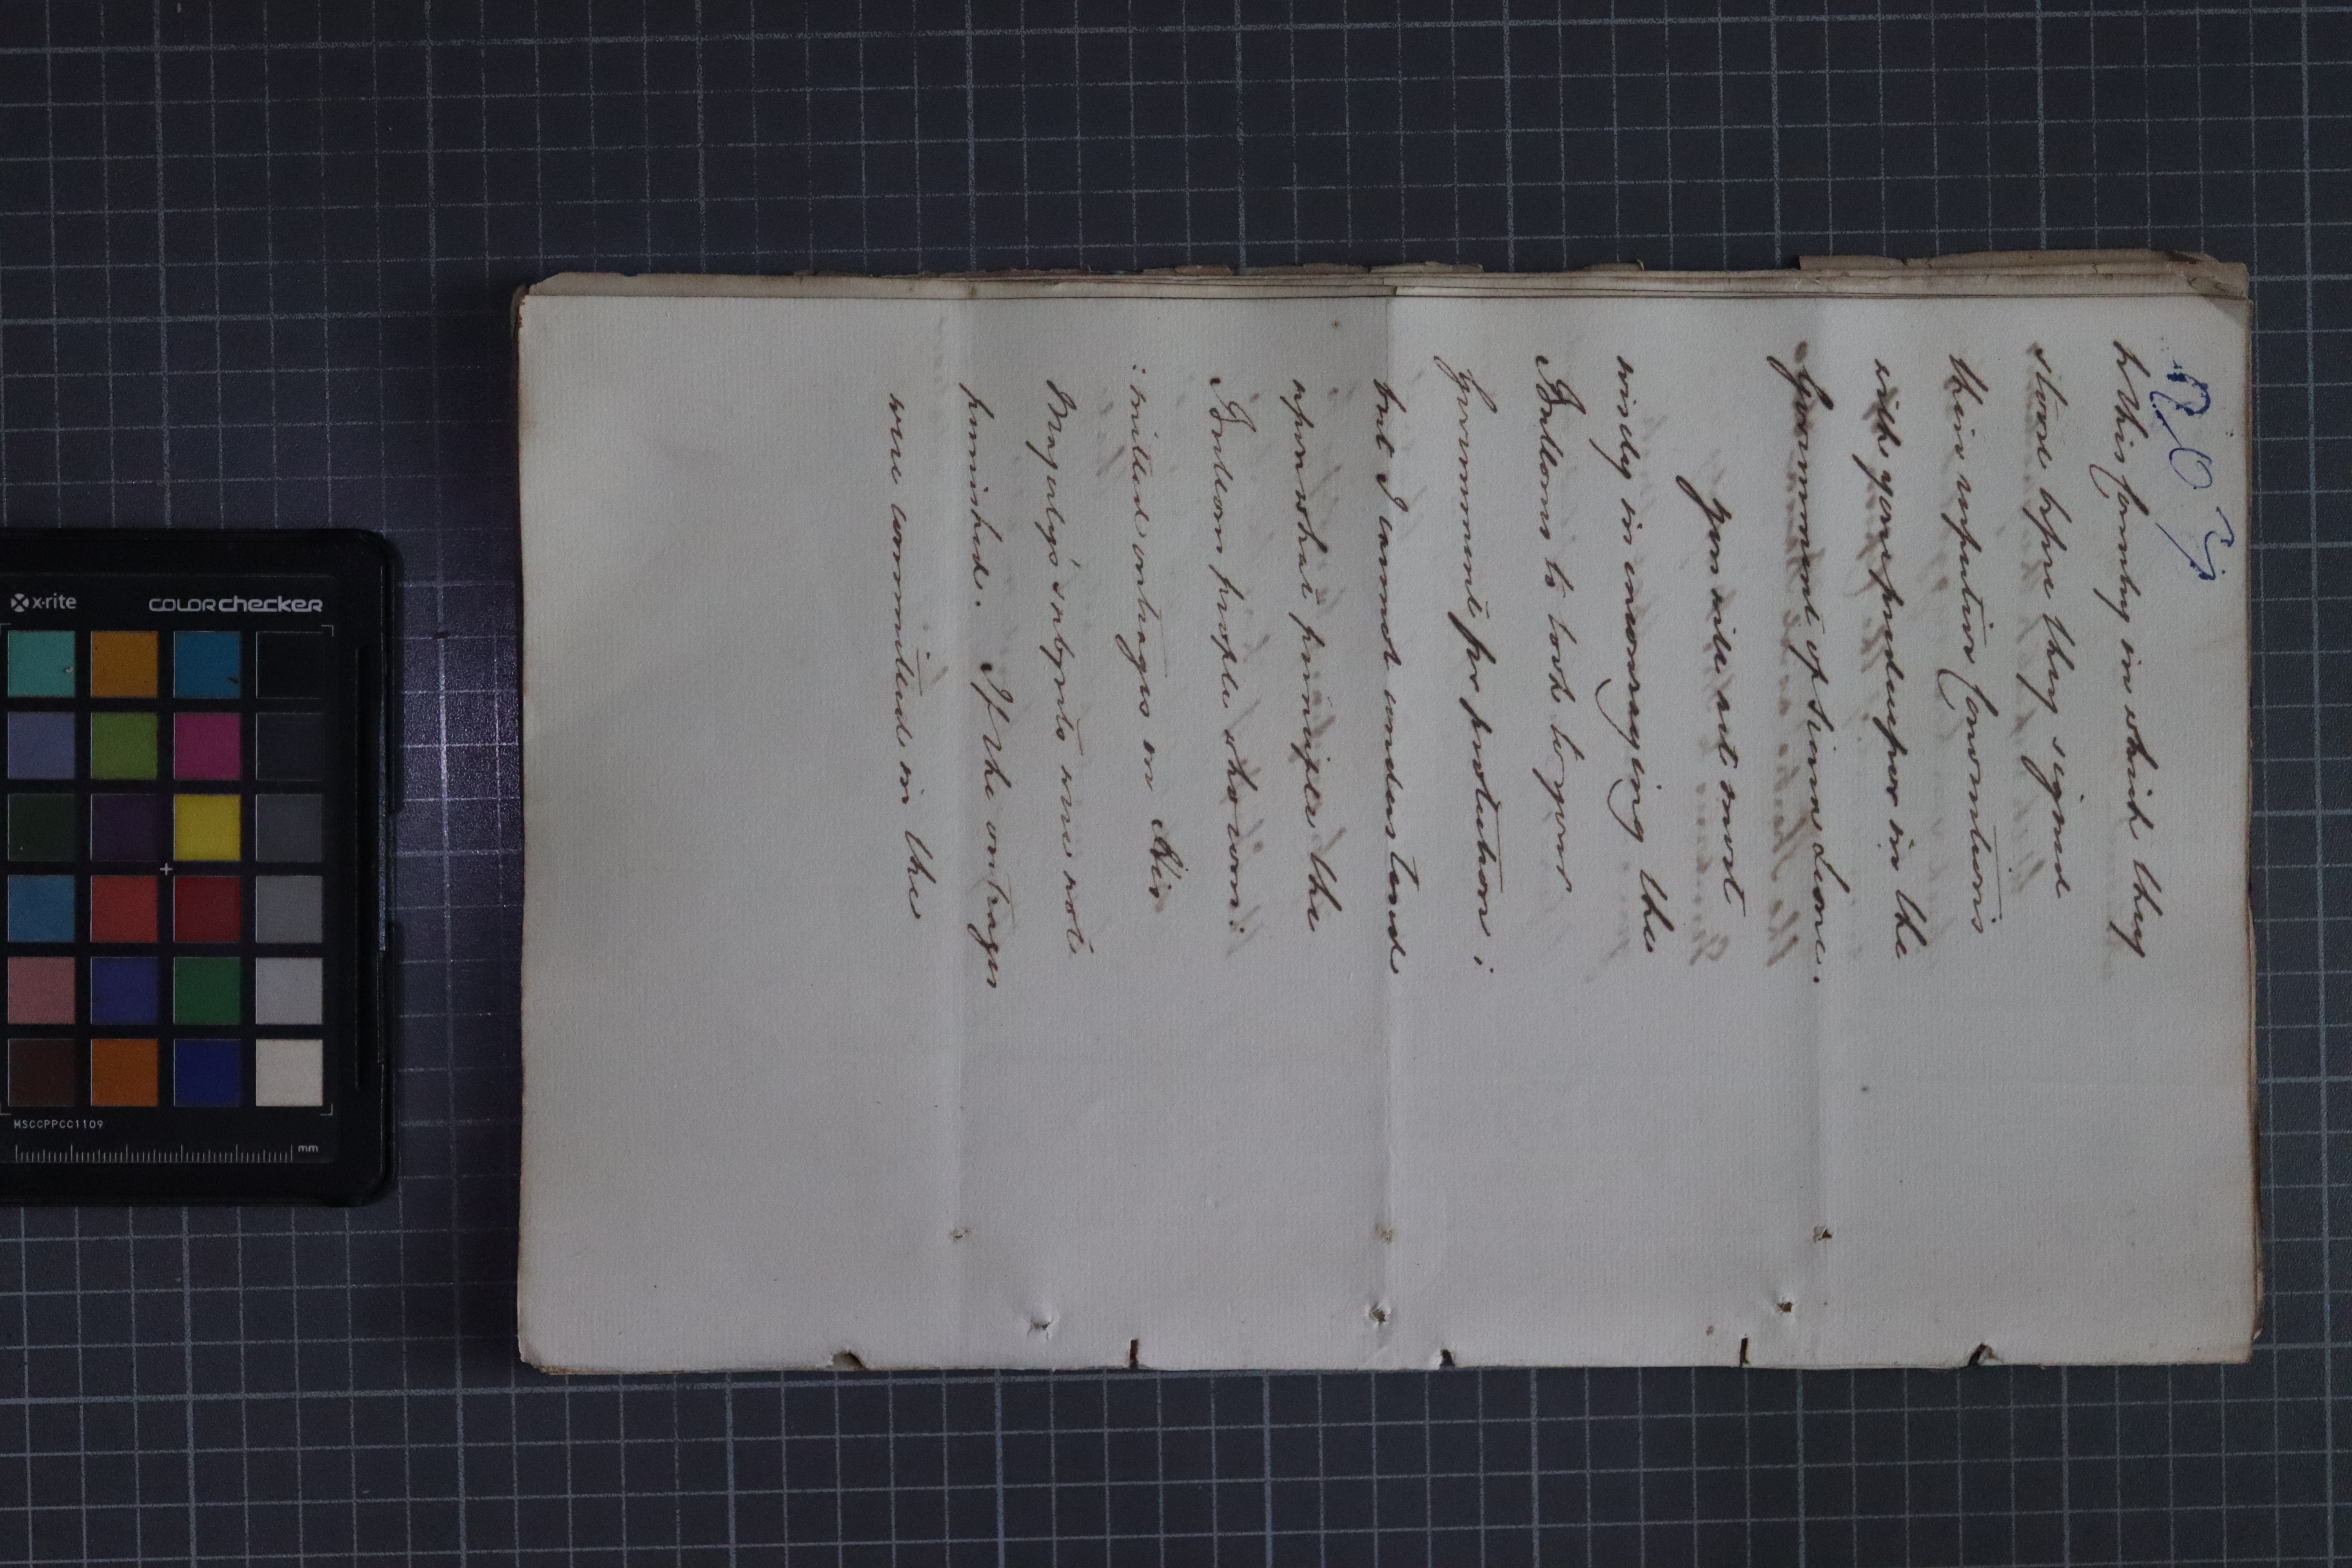 to this Country in which they
stood before they signed
their respective Conventions
with your predecessor in the
Government of Sierra Leone.
You will act most
wisely in encouraging the
Sultans to look to your
Government for protection;
but I cannot understand
upon what principle the
Indeom people who com:
:mitted outrages on His
Majesty's subjects were not
punished. If the outrages
were committed in the
x-rite
COLORchecker
MSCCPPCC1109
mm